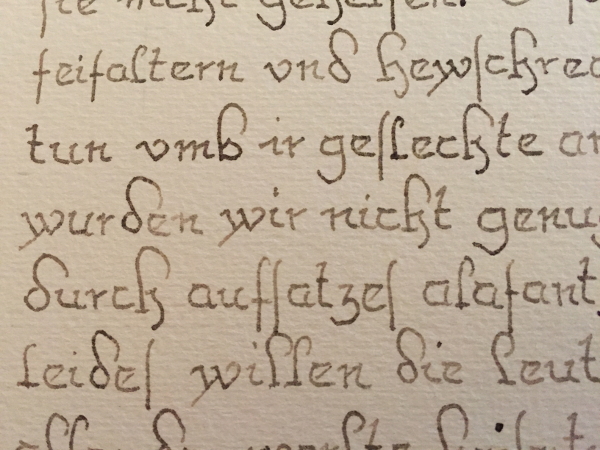 feifaltern vnd hewſchrec
tun vmb ir geſleckte an
wurden wir nicht genug
durch aufſatzeſ alafant
leideſ willen die leut